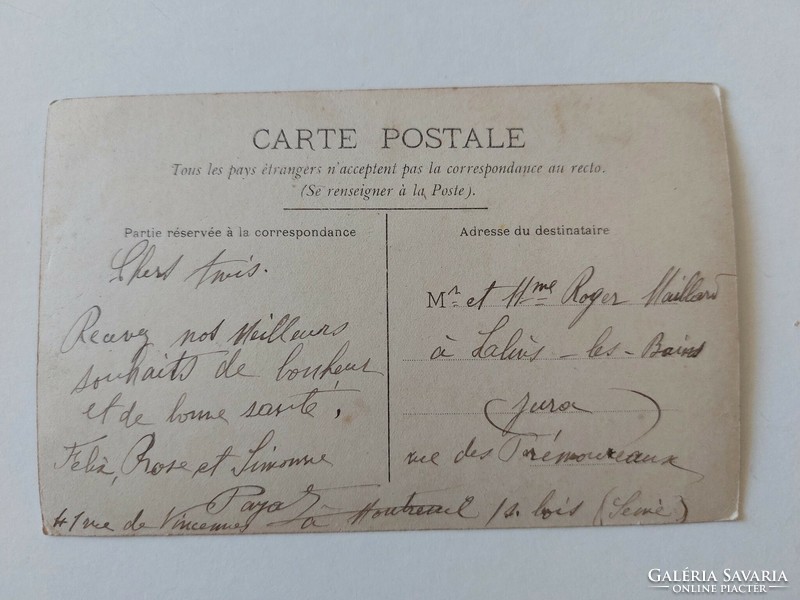 CARTE POSTALE
Tous les pays étrangers n'acceptent pas la correspondance au recto.
(Se renseigner à la Poste).
Partie réservée à la correspondance
Chers Amis.
Recevez nos Meilleurs
souhaits de bonheur
et de bonne santé.
Felix, Rose et Simonne
41 rue de Vincennes à Montreuil /s. bois (Seine)
Adresse du destinataire
Mr et Mme Roger Maillard
à Salins-les-Bains
Jura
rue des
GALÉRIA SAVARIA
ONLINE PIACTÉR